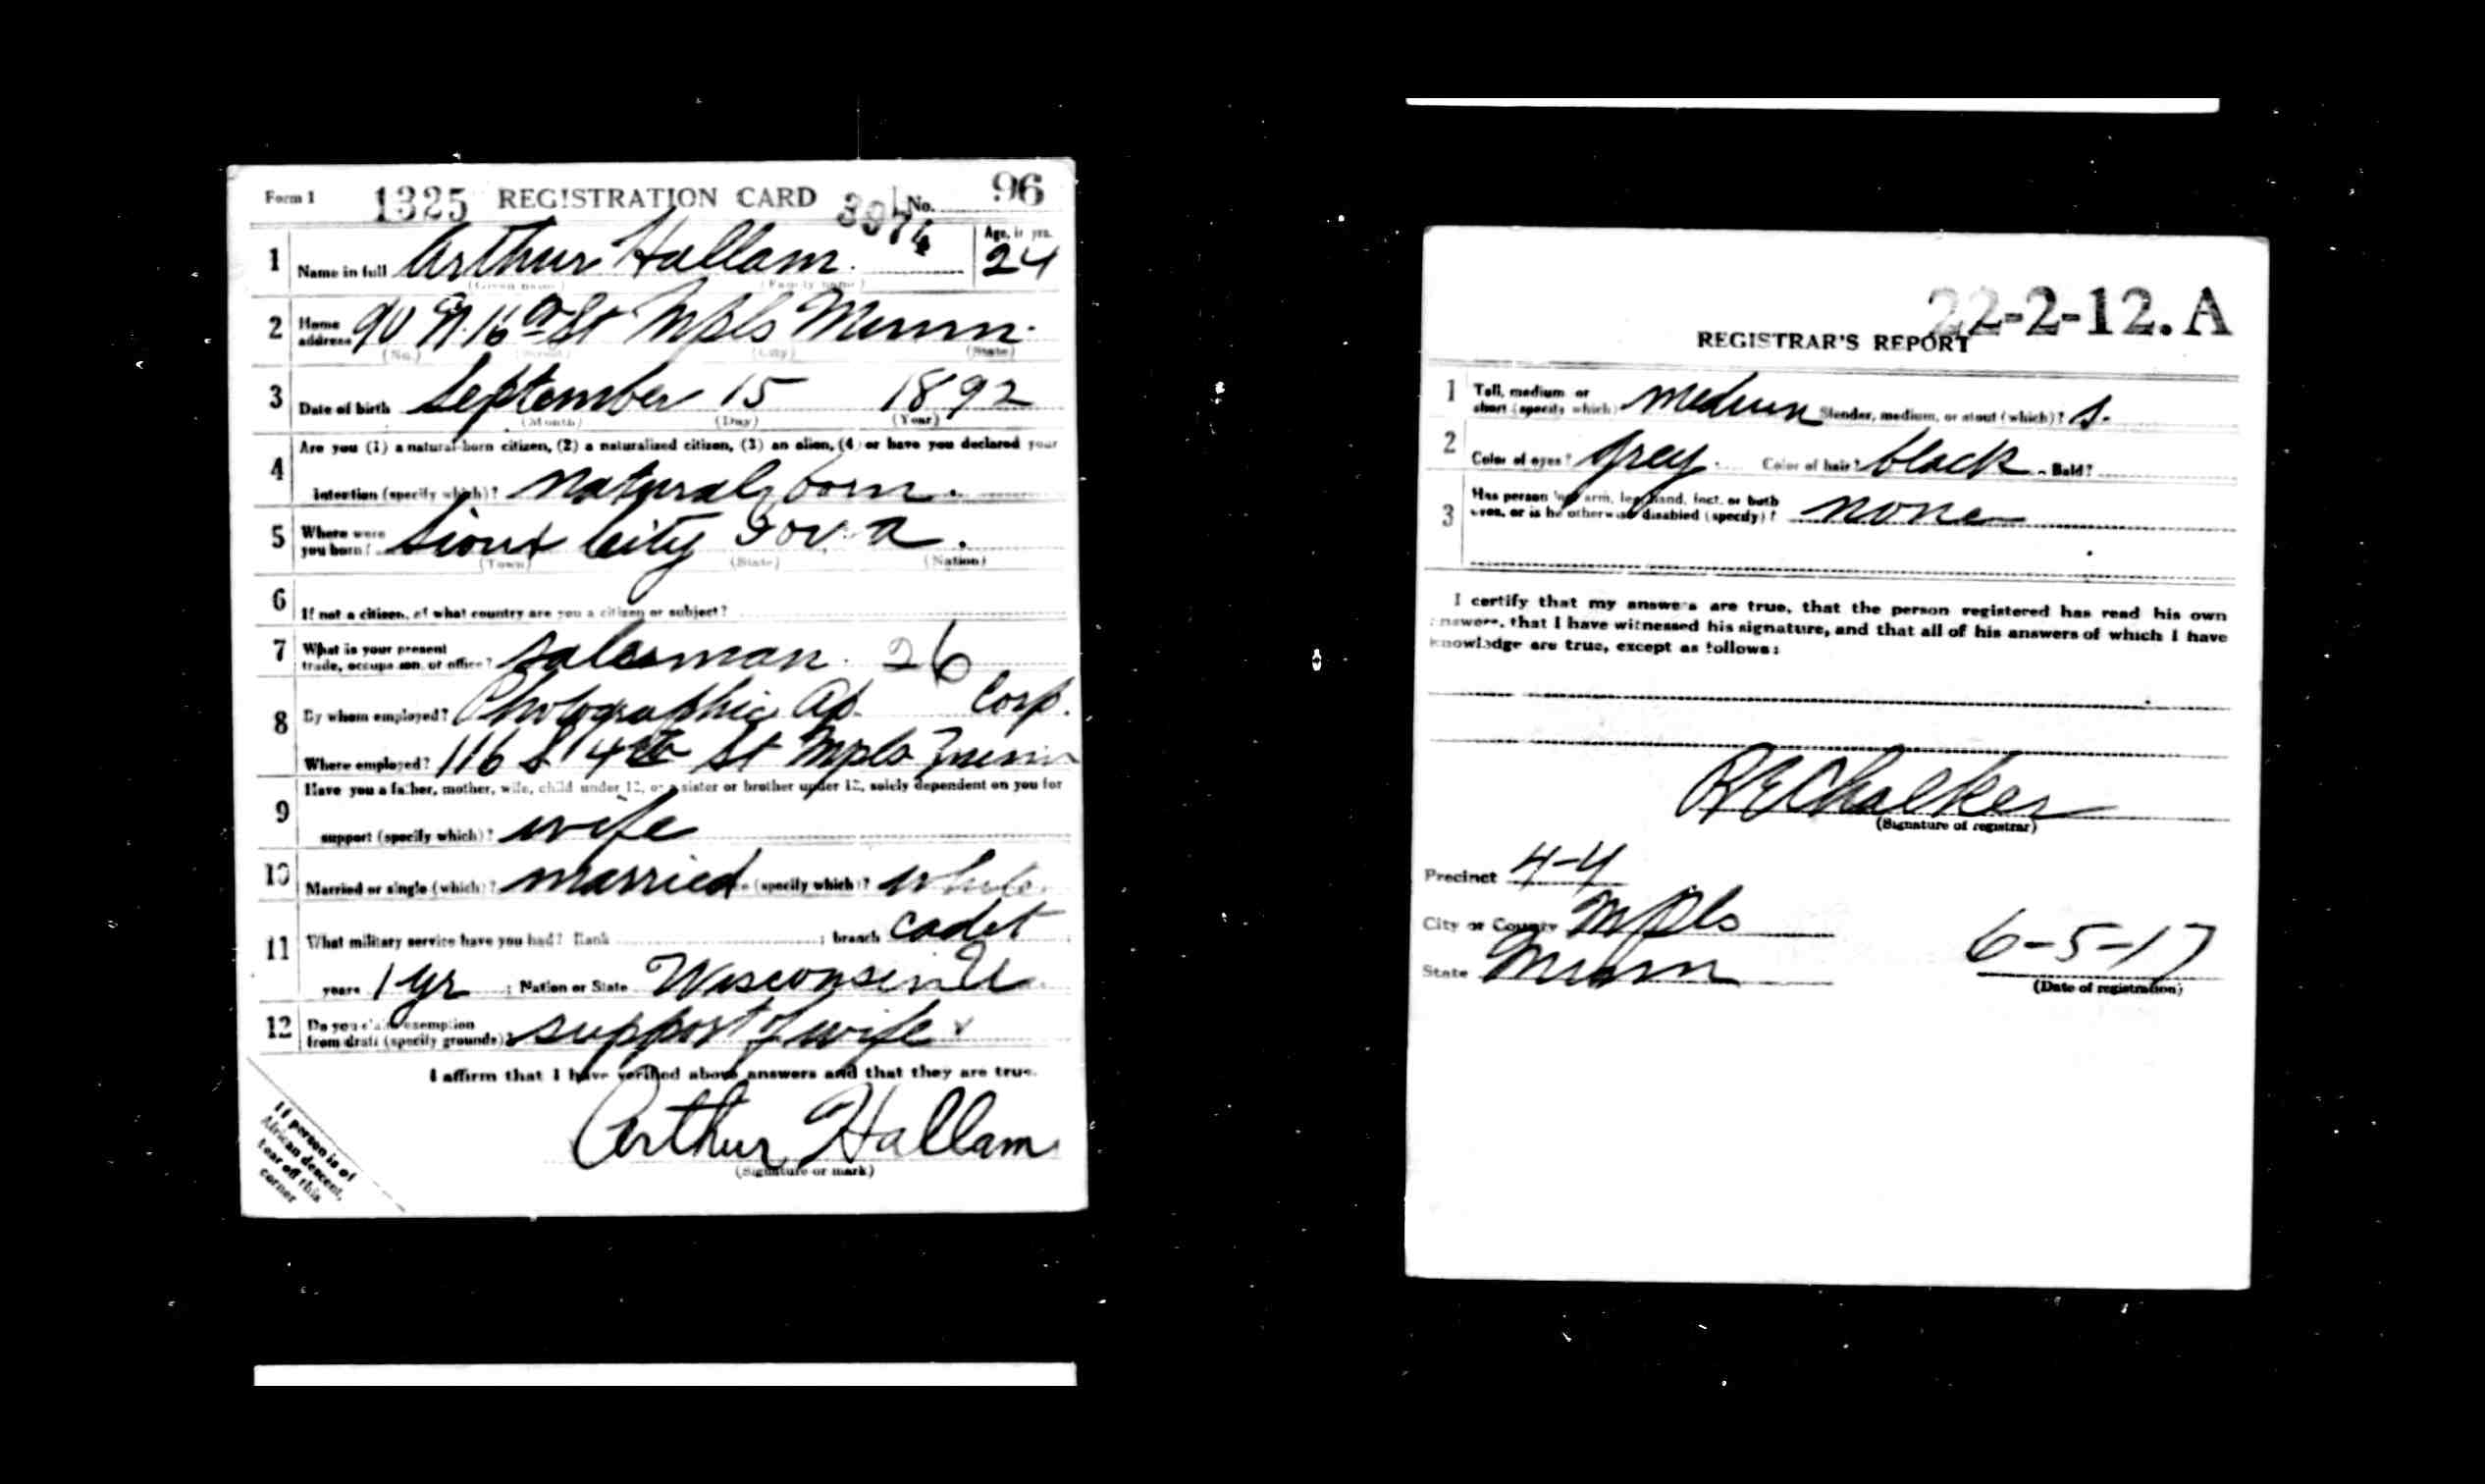 Form 1 1325 REGISTRATION CARD No. 96
1 Name in full Arthur Hallam. Age, in yrs. 24
(Given name) (Family name)
2 Home address 90 N. 16th St Mpls Minn.
(No.) (Street) (City) (State)
3 Date of birth September 15 1892
(Month) (Day) (Year)
Are you (1) a natural-born citizen, (2) a naturalized citizen, (3) an alien, (4) or have you declared your
4 intention (specify which)? natural born.
5 Where were you born? Sioux City Iowa.
(Town) (State) (Nation)
6 If not a citizen, of what country are you a citizen or subject?
7 What is your present trade, occupation, or office? salesman. 26
8 By whom employed? Photographic Ap. Corp.
Where employed? 116 S 4th St Mpls Minn
9 Have you a father, mother, wife, child under 12, or a sister or brother under 12, solely dependent on you for
support (specify which)? wife
10 Married or single (which)? married (specify which)? white
11 What military service have you had? Rank ; branch cadet
years 1 yr ; Nation or State Wisconsin U
12 Do you claim exemption from draft (specify grounds)? support of wife
I affirm that I have verified above answers and that they are true.
Arthur Hallam
(Signature or mark)
If person is of
African descent,
tear off this
corner
22-2-12. A
REGISTRAR'S REPORT
1 Tall, medium or short (specify which) medium Slender, medium, or stout (which)? s.
2 Color of eyes? grey. Color of hair? black Bald?
3 Has person lost arm, leg, hand, foot, or both
eyes, or is he otherwise disabled (specify)? none
I certify that my answers are true, that the person registered has read his own
answers, that I have witnessed his signature, and that all of his answers of which I have
knowledge are true, except as follows:
R E Chalker
(Signature of registrar)
Precinct 4-4
City or County Mpls
State Minn
6-5-17
(Date of registration)